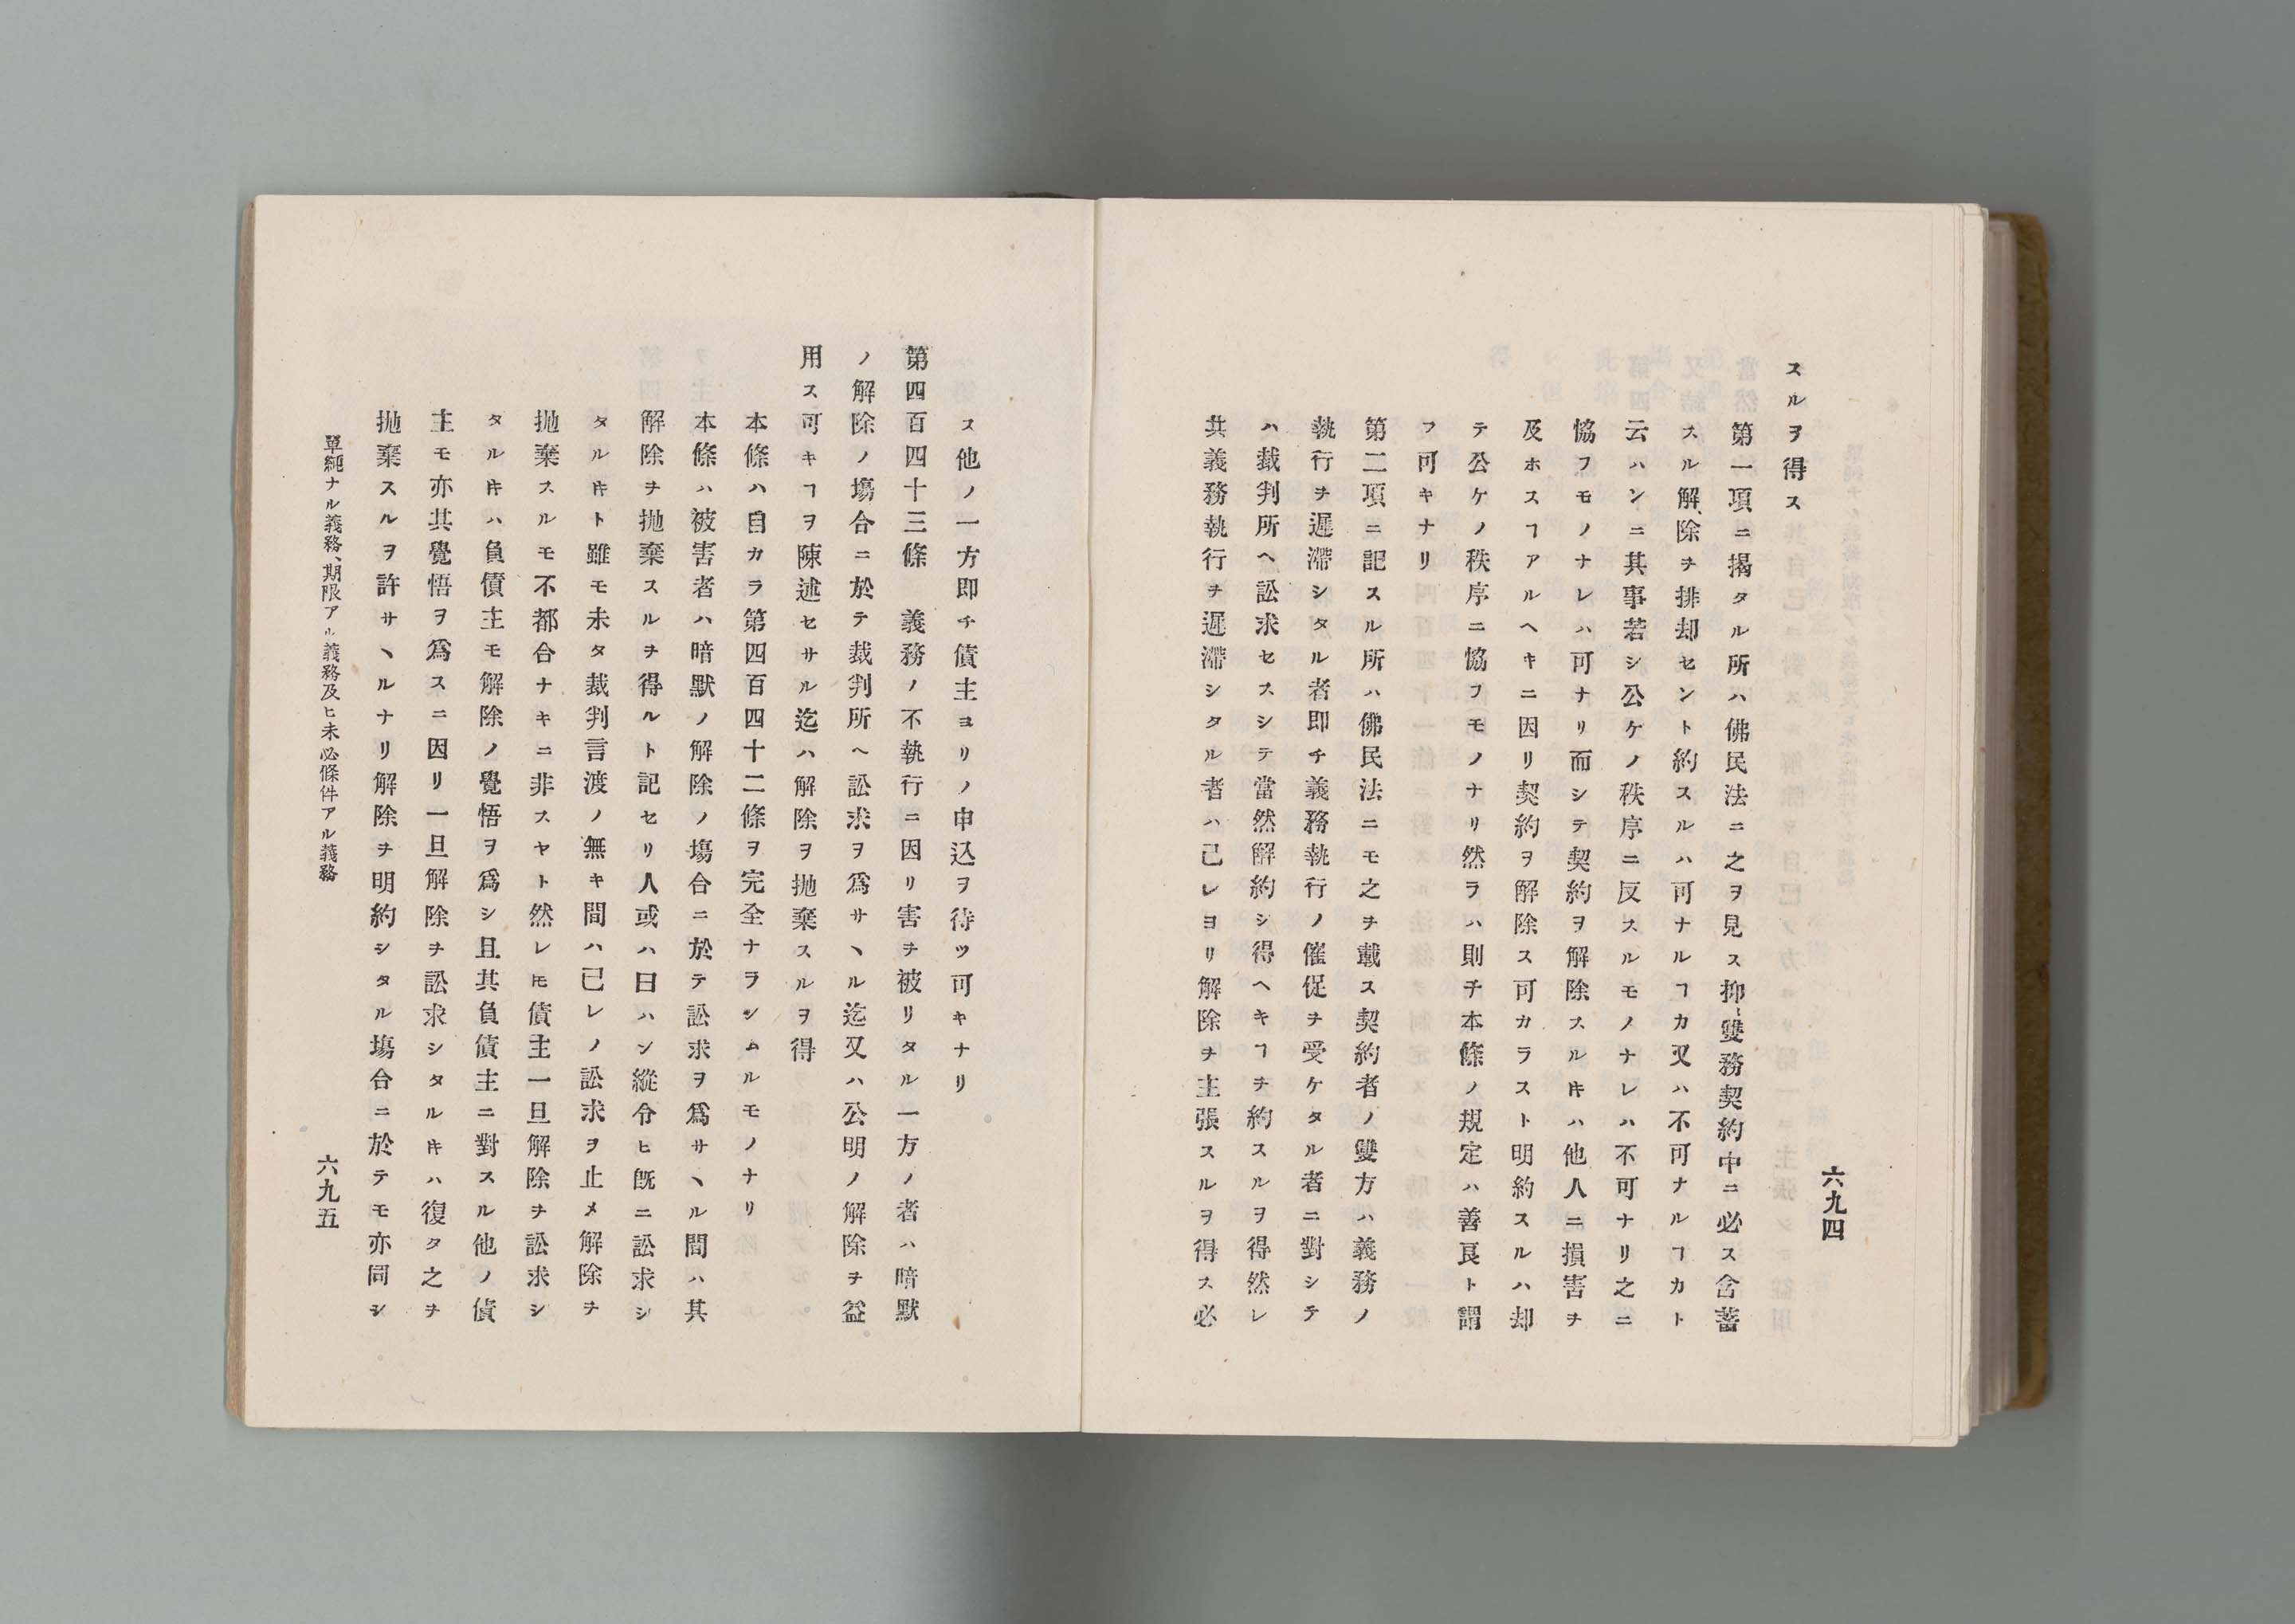 六九四
スルヲ得ス
第一項ニ揭タル所ハ佛民法ニ之ヲ見ス抑〻雙務契約中ニ必ス含蓄
スル解除ヲ排却セント約スルハ可ナルヿカ又ハ不可ナルヿカト
云ハンニ其事若シ公ケノ秩序ニ反スルモノナレハ不可ナリ之ニ
恊フモノナレハ可ナリ而シテ契約ヲ解除スルキハ他人ニ損害ヲ
及ホスヿアルヘキニ因リ契約ヲ解除ス可カラスト明約スルハ却
テ公ケノ秩序ニ恊フモノナリ然ラハ則チ本條ノ規定ハ善良ト謂
フ可キナリ
第二項ニ記スル所ハ佛民法ニモ之ヲ載ス契約者ノ雙方ハ義務ノ
執行ヲ遲滯シタル者即チ義務執行ノ催促ヲ受ケタル者ニ對シテ
ハ裁判所ヘ訟求セスシテ當然解約シ得ヘキヿヲ約スルヲ得然レ
共義務執行ヲ遲滯シタル者ハ己レヨリ解除ヲ主張スルヲ得ス必
ス他ノ一方即チ債主ヨリノ申込ヲ待ツ可キナリ
第四百四十三條　義務ノ不執行ニ因リ害ヲ被リタル一方ノ者ハ暗默
ノ解除ノ塲合ニ於テ裁判所ヘ訟求ヲ爲サヽル迄又ハ公明ノ解除ヲ益
用ス可キヿヲ陳述セサル迄ハ解除ヲ抛棄スルヲ得
本條ハ自カラ第四百四十二條ヲ完全ナラシムルモノナリ
本條ハ被害者ハ暗默ノ解除ノ塲合ニ於テ訟求ヲ爲サヽル間ハ其
解除ヲ抛棄スルヲ得ルト記セリ人或ハ曰ハン縱令ヒ旣ニ訟求シ
タルキト雖モ未タ裁判言渡ノ無キ間ハ己レノ訟求ヲ止メ解除ヲ
抛棄スルモ不都合ナキニ非スヤト然レ𪜈債主一旦解除ヲ訟求シ
タルキハ負債主モ解除ノ覺悟ヲ爲シ且其負債主ニ對スル他ノ債
主モ亦其覺悟ヲ爲スニ因リ一旦解除ヲ訟求シタルキハ復タ之ヲ
抛棄スルヲ許サヽルナリ解除ヲ明約シタル塲合ニ於テモ亦同シ
單純ナル義務、期限アル義務及ヒ未必條件アル義務
六九五